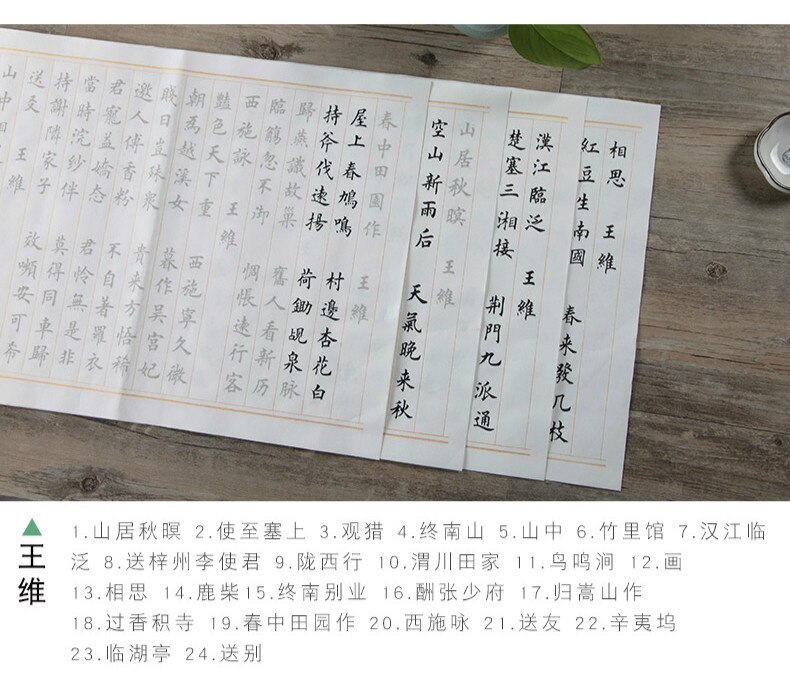 相思 王維
紅豆生南國 春来發几枝
漢江臨泛 王維
楚塞三湘接 荆門九派通
山居秋暝 王維
空山新雨后 天氣晚来秋
春中田園作 王維
屋上春鳩鳴 村邊杏花白
持斧伐遠揚 荷鋤覘泉脉
歸燕識故巢 舊人看新历
臨觴忽不御 惆悵遠行客
西施詠 王維
豔色天下重 西施寧久微
朝為越溪女 暮作吴宫妃
賤日豈殊衆 貴来方悟稀
邀人傅香粉 不自著羅衣
君寵益嬌态 君怜無是非
當時浣紗伴 莫得同車歸
持謝鄰家子 效顰安可希
送友 王維
山中相
王维
1.山居秋暝 2.使至塞上 3.观猎 4.终南山 5.山中 6.竹里馆 7.汉江临
泛 8.送梓州李使君 9.陇西行 10.渭川田家 11.鸟鸣涧 12.画
13.相思 14.鹿柴15.终南别业 16.酬张少府 17.归嵩山作
18.过香积寺 19.春中田园作 20.西施咏 21.送友 22.辛夷坞
23.临湖亭 24.送别